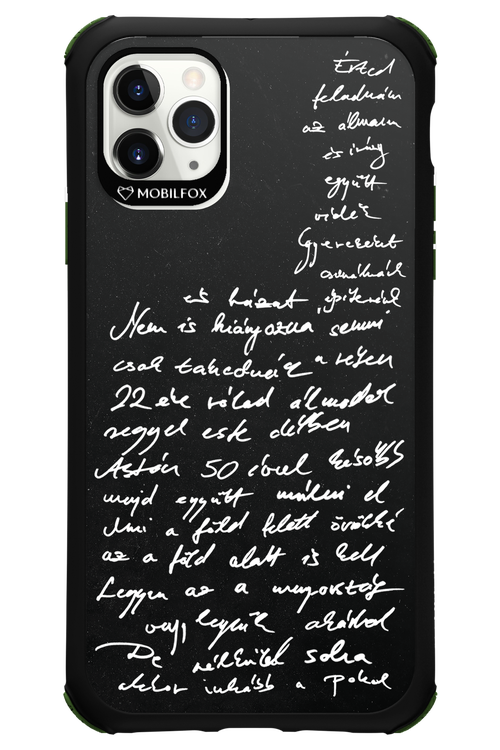 MOBILFOX
Érted
feladnám
az álmam
és míg
együtt
vidék
Gyerekeket
csinálnánk
és házat építenénk
Nem is hiányozna semmi
csak takednék a réten
22 éve rólad álmodok
reggel este délben
Aztán 50 évvel később
majd együtt múlni el
Ami a föld felett örökké
az a föld alatt is kell
Legyen az a mennyország
vagy legyünk akárhol
De nélküled soha
akkor inkább a pokol